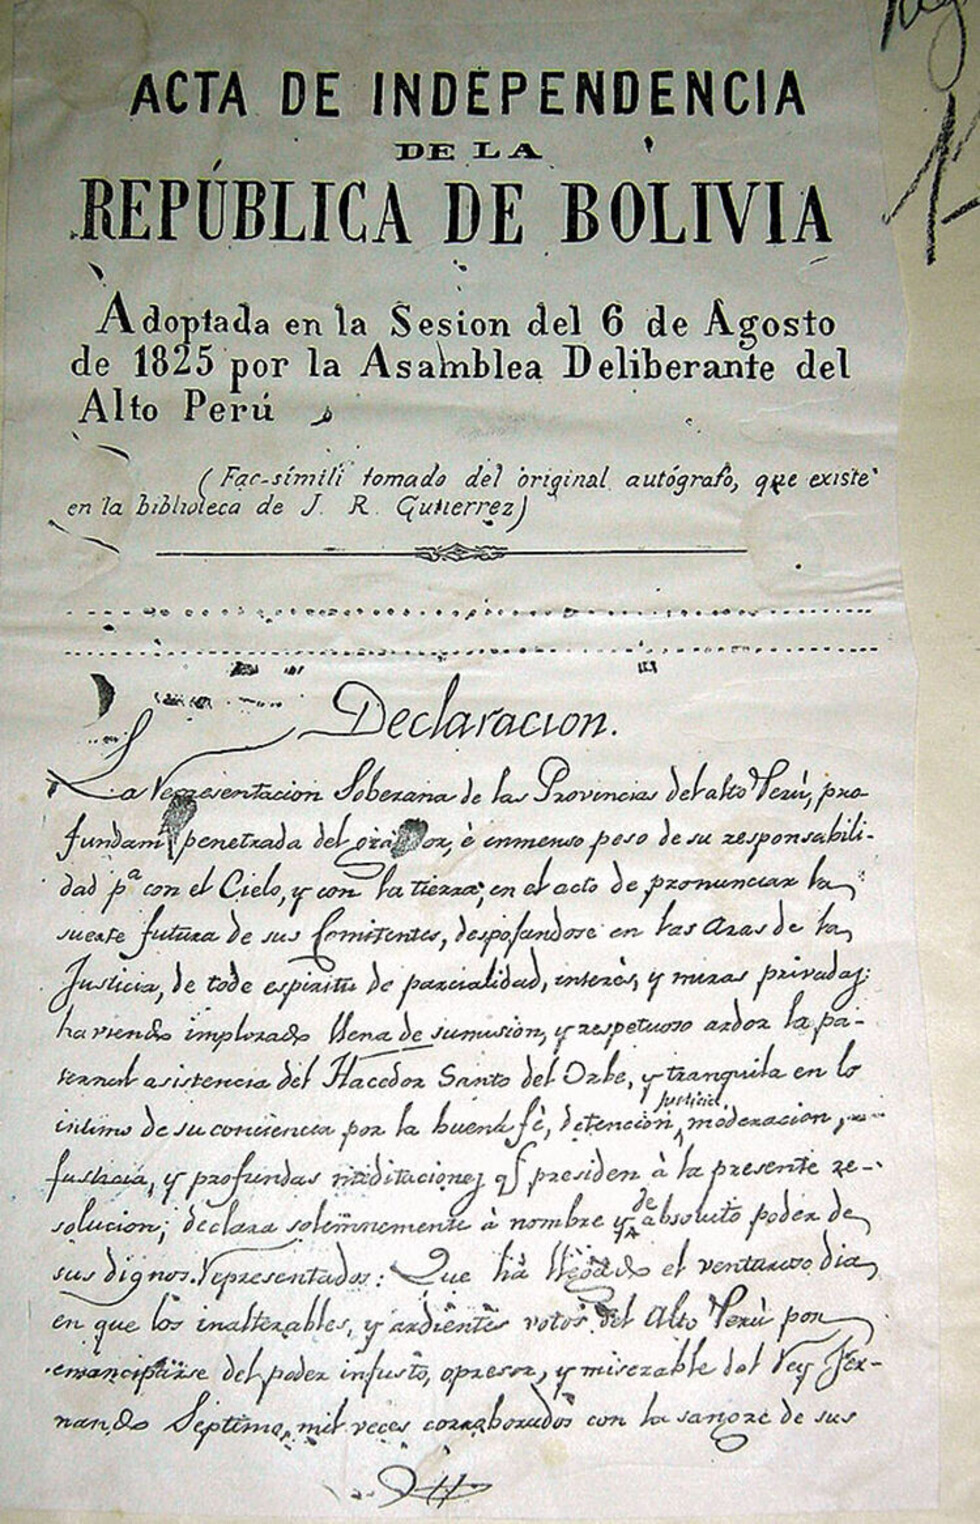 ACTA DE INDEPENDENCIA
DE LA
REPÚBLICA DE BOLIVIA
Adoptada en la Sesion del 6 de Agosto
de 1825 por la Asamblea Deliberante del
Alto Perú
(Fac-símili tomado del original autógrafo, que existe
en la biblioteca de J. R. Gutierrez)
Declaracion.
La Representacion Soberana de las Provincias del alto Perú, pro-
fundam penetrada del or, è enmenso peso de su responsabili-
dad pª con el Cielo, y con la tierra; en el acto de pronunciar la
suerte futura de sus Comitentes, despojandose en las aras de la
Justicia, de tode espiritu de parcialidad, interes, y miras privadas;
haviendo implorado llena de sumision, y respetuoso ardor la pa-
ternal asistencia del Hacedor Santo del Orbe, y tranquila en lo
intimo de su conciencia por la buena fè, detencion, justicia, moderacion,
justicia, y profundas meditaciones q presiden à la presente re-
solucion; declara solemnemente à nombre y de absoluto poder de
sus dignos Representados: Que hà llegado el venturoso dia
en que los inalterables, y ardientes votos del Alto Perù por
emanciparse del poder injusto, opresor, y miserable del Rey Fer-
nando Septimo, mil veces corroborados con la sangre de sus